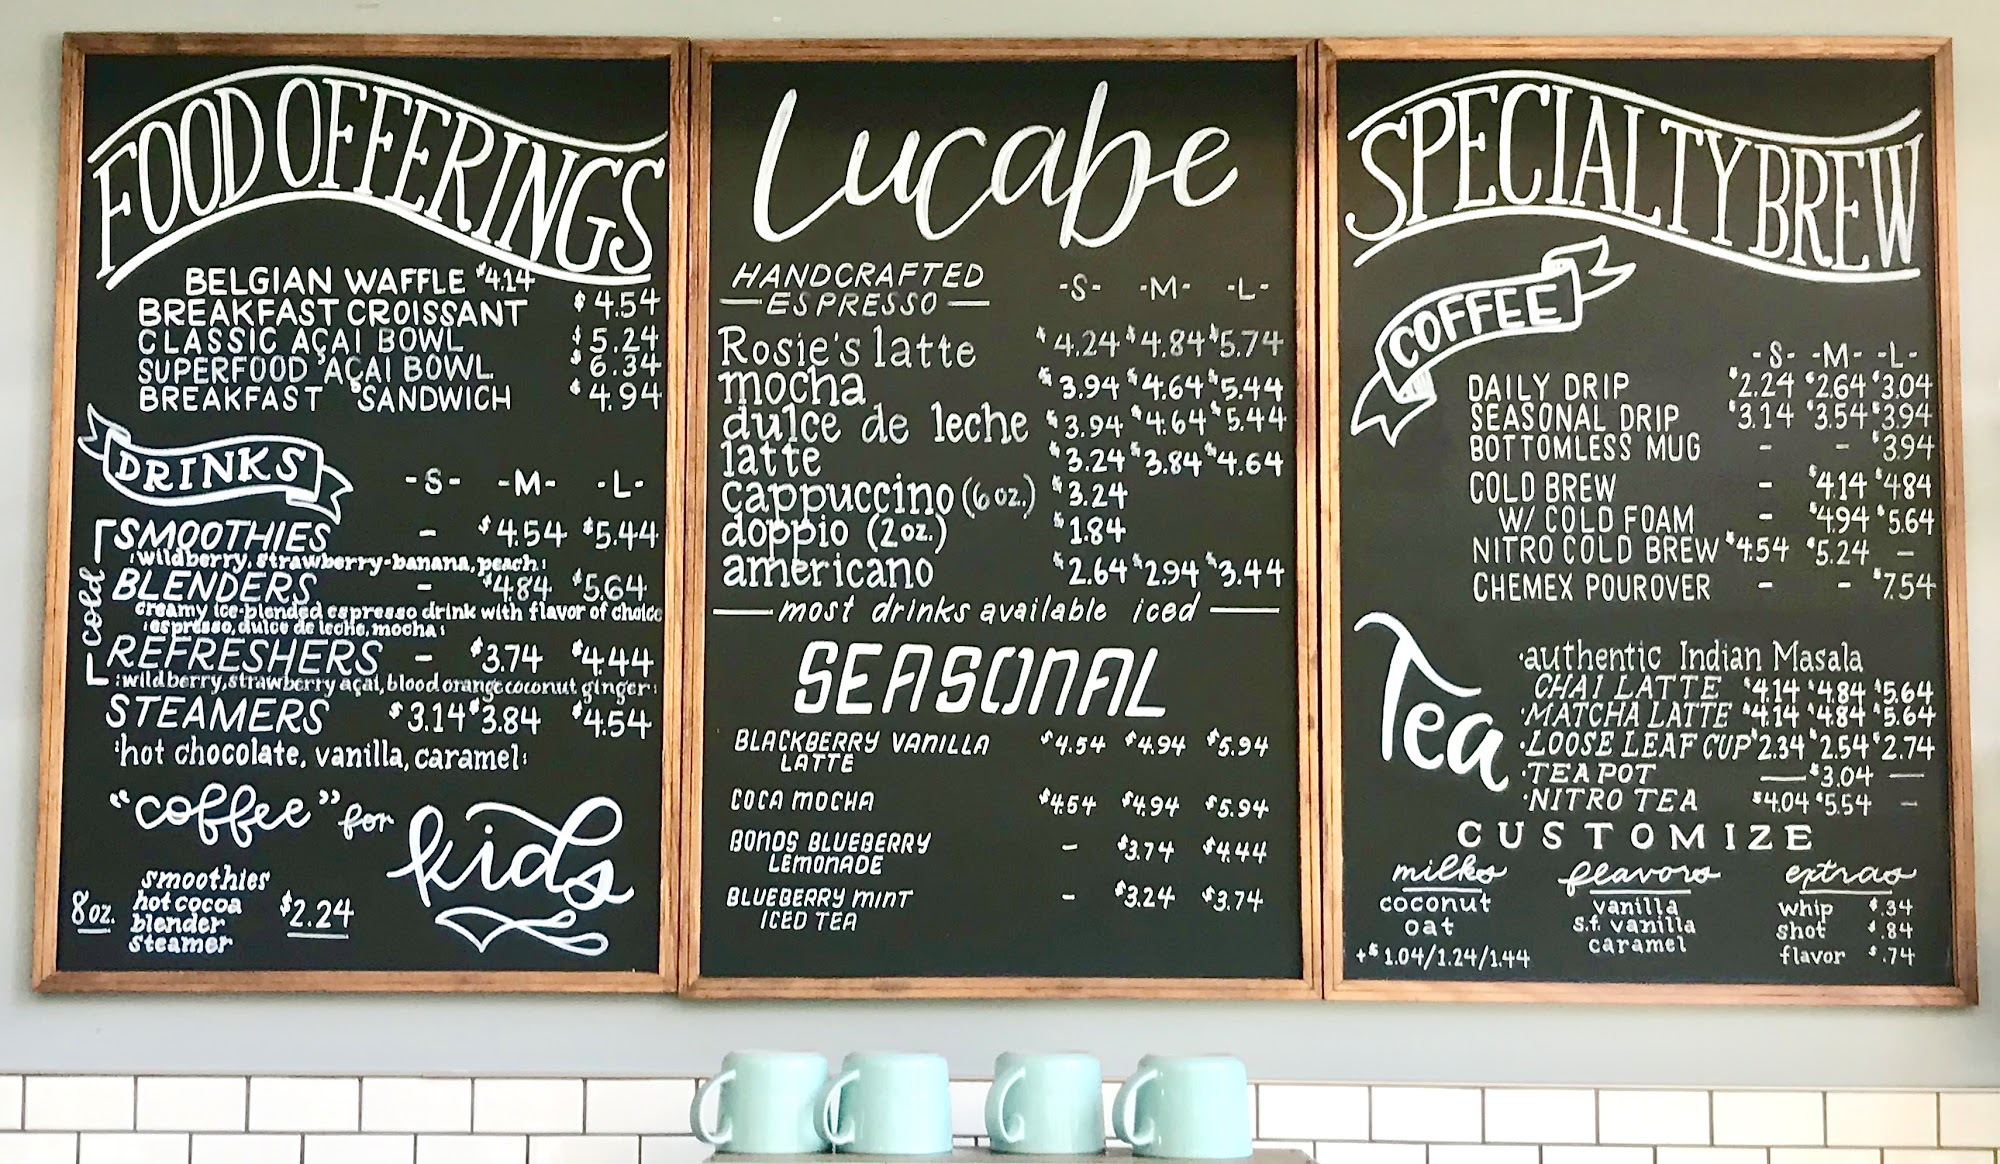 FOOD OFFERINGS
BELGIAN WAFFLE $4.14
BREAKFAST CROISSANT $4.54
CLASSIC AÇAI BOWL $5.24
SUPERFOOD AÇAI BOWL $6.34
BREAKFAST SANDWICH $4.94
DRINKS -S- -M- -L-
cold
SMOOTHIES - $4.54 $5.44
:wildberry, strawberry-banana, peach:
BLENDERS - $4.84 $5.64
creamy ice-blended espresso drink with flavor of choice
:espresso, dulce de leche, mocha:
REFRESHERS - $3.74 $4.44
:wildberry, strawberry açai, blood orange coconut ginger:
STEAMERS $3.14 $3.84 $4.54
:hot chocolate, vanilla, caramel:
"coffee" for kids
8oz. smoothies
hot cocoa $2.24
blender
steamer
Lucabe
HANDCRAFTED
ESPRESSO -S- -M- -L-
Rosie's latte $4.24 $4.84 $5.74
mocha $3.94 $4.64 $5.44
dulce de leche $3.94 $4.64 $5.44
latte $3.24 $3.84 $4.64
cappuccino (6 oz.) $3.24
doppio (2oz.) $1.84
americano $2.64 $2.94 $3.44
most drinks available iced
SEASONAL
BLACKBERRY VANILLA $4.54 $4.94 $5.94
LATTE
COCA MOCHA $4.54 $4.94 $5.94
BONDS BLUEBERRY - $3.74 $4.44
LEMONADE
BLUEBERRY MINT - $3.24 $3.74
ICED TEA
SPECIALTY BREW
COFFEE
-S- -M- -L-
DAILY DRIP $2.24 $2.64 $3.04
SEASONAL DRIP $3.14 $3.54 $3.94
BOTTOMLESS MUG - - $3.94
COLD BREW - $4.14 $4.84
W/ COLD FOAM - $4.94 $5.64
NITRO COLD BREW $4.54 $5.24 -
CHEMEX POUROVER - - $7.54
Tea
·authentic Indian Masala
CHAI LATTE $4.14 $4.84 $5.64
·MATCHA LATTE $4.14 $4.84 $5.64
·LOOSE LEAF CUP $2.34 $2.54 $2.74
·TEA POT — $3.04 —
·NITRO TEA $4.04 $5.54 -
CUSTOMIZE
milks flavors extras
coconut vanilla whip $.34
oat s.f. vanilla shot $.84
+$1.04/1.24/1.44 caramel flavor $.74